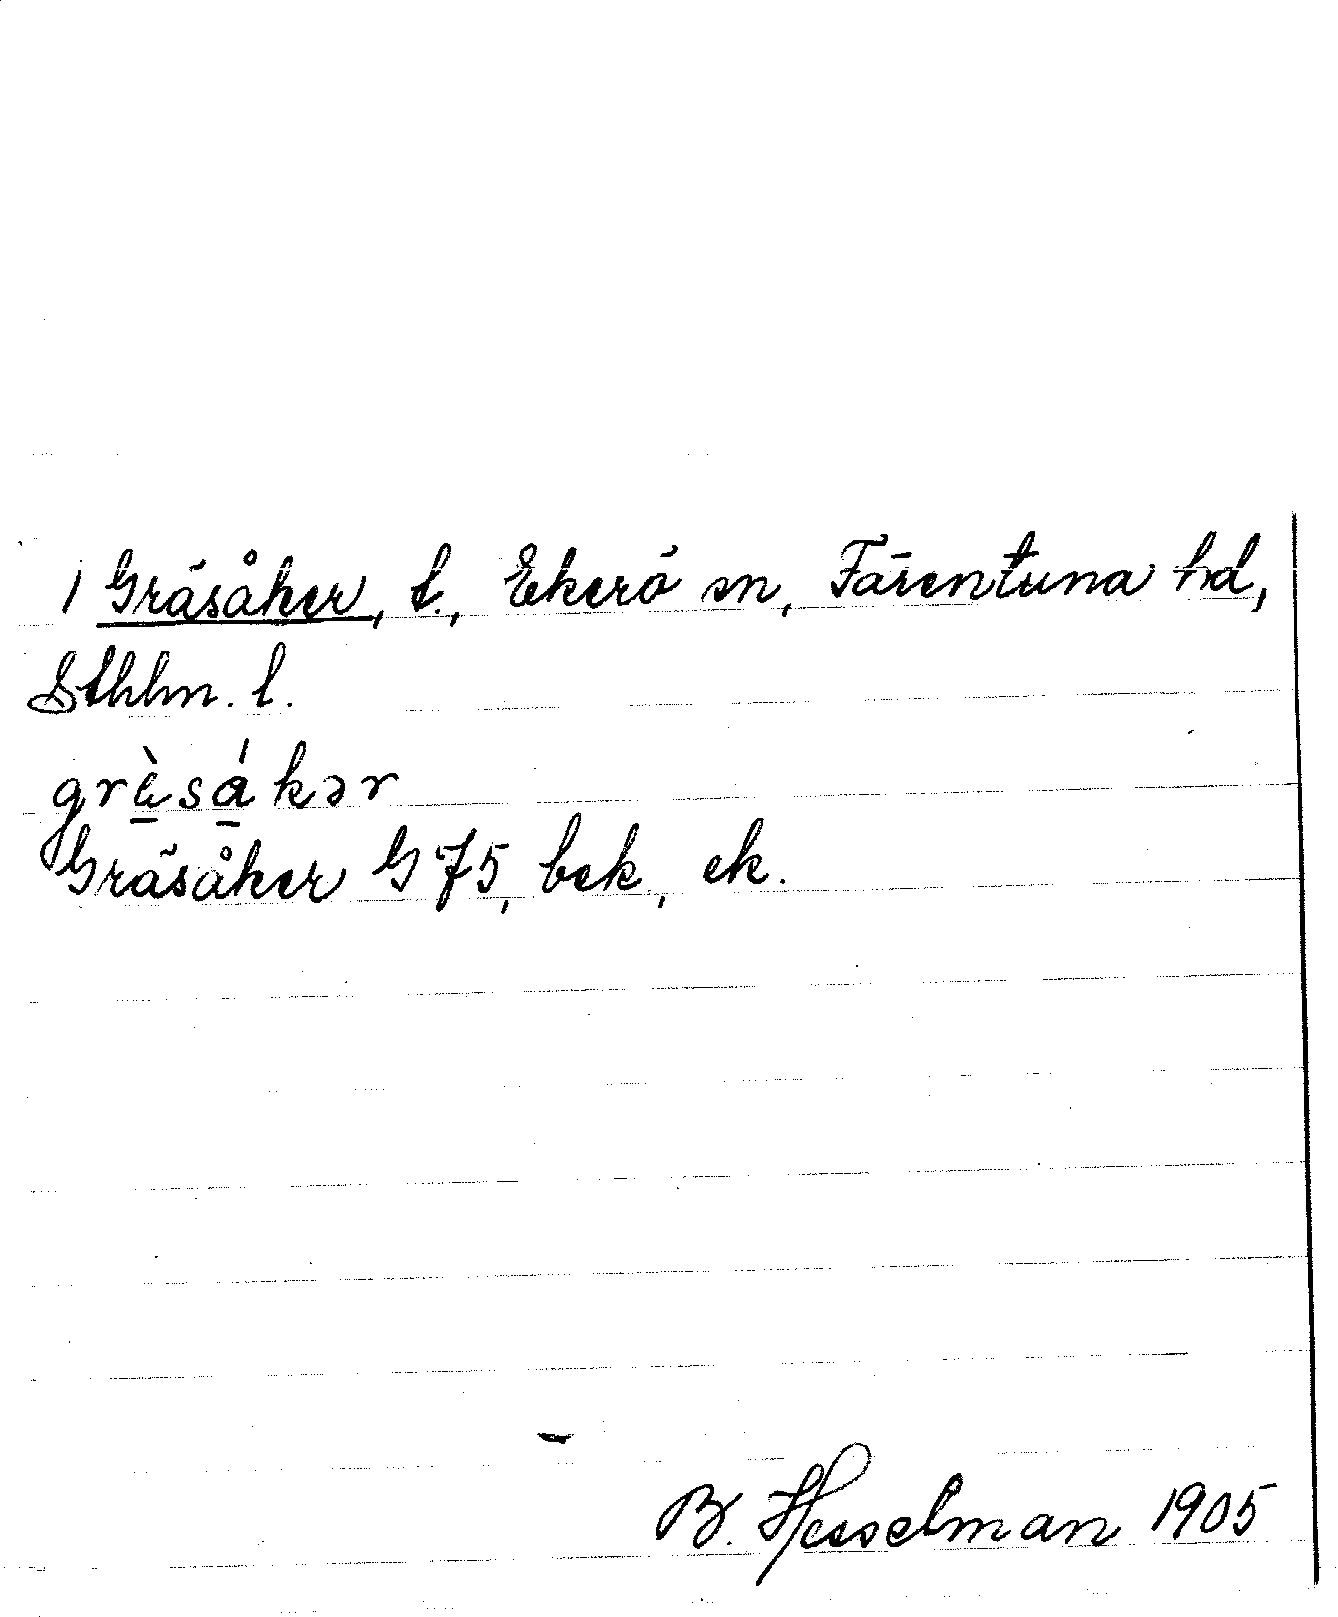 1 Gräsåker, t., Ekerö sn, Färentuna hd,
Sthlm. l.
grä̀sákər
Gräsåker G 75, bek, ek.
B. Hesselman 1905